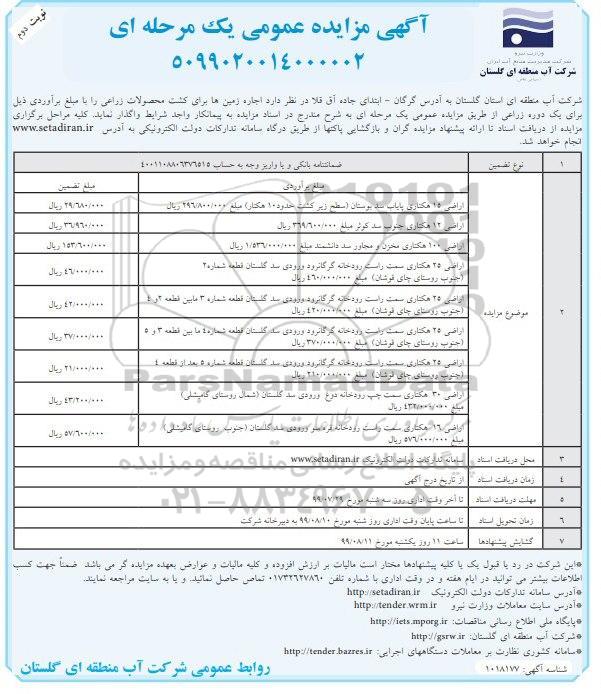 نوبت دوم
آگهی مزایده عمومی یک مرحله ای
۵۰۹۹۰۲۰۰۱۴۰۰۰۰۰۲
وزارت نیرو
شرکت مدیریت منابع آب ایران
شرکت آب منطقه ای گلستان
شرکت آب منطقه ای استان گلستان به آدرس گرگان - ابتدای جاده آق قلا در نظر دارد اجاره زمین ها برای کشت محصولات زراعی را با مبلغ برآوردی ذیل
برای یک دوره زراعی از طریق مزایده عمومی یک مرحله ای به شرح مندرج در اسناد مزایده به پیمانکار واجد شرایط واگذار نماید. کلیه مراحل برگزاری
مزایده از دریافت اسناد تا ارائه پیشنهاد مزایده گران و بازگشایی پاکتها از طریق درگاه سامانه تدارکات دولت الکترونیکی به آدرس www.setadiran.ir
انجام خواهد شد.
۱ نوع تضمین ضمانتنامه بانکی و یا واریز وجه به حساب ۴۰۰۱۱۰۸۸۰۶۳۷۶۵۱۵
۲ موضوع مزایده
مبلغ برآوردی مبلغ تضمین
اراضی ۱۵ هکتاری پایاب سد بوستان (سطح زیر کشت حدود ۱۰ هکتار) مبلغ ۲۹۶/۸۰۰/۰۰۰ ریال ۲۹/۶۸۰/۰۰۰ ریال
اراضی ۱۲ هکتاری جنوب سد کوثر مبلغ ۳۶۹/۶۰۰/۰۰۰ ریال ۳۶/۹۶۰/۰۰۰ ریال
اراضی ۱۰۰ هکتاری مخزن و مجاور سد دانشمند مبلغ ۱/۵۳۶/۰۰۰/۰۰۰ ریال ۱۵۳/۶۰۰/۰۰۰ ریال
اراضی ۲۵ هکتاری سمت راست رودخانه گرگانرود ورودی سد گلستان قطعه شماره۲
(جنوب روستای چای قوشان) مبلغ ۴۶۰/۰۰۰/۰۰۰ ریال ۴۶/۰۰۰/۰۰۰ ریال
اراضی ۲۵ هکتاری سمت راست رودخانه گرگانرود ورودی سد گلستان قطعه شماره ۳ مابین قطعه ۲و ۴
(جنوب روستای چای قوشان) مبلغ ۴۲۰/۰۰۰/۰۰۰ ریال ۴۲/۰۰۰/۰۰۰ ریال
اراضی ۲۵ هکتاری سمت راست رودخانه گرگانرود ورودی سد گلستان قطعه شماره۴ ما بین قطعه ۳ و ۵
(جنوب روستای چای قوشان) مبلغ ۳۷۰/۰۰۰/۰۰۰ ریال ۳۷/۰۰۰/۰۰۰ ریال
اراضی ۲۵ هکتاری سمت راست رودخانه گرگانرود ورودی سد گلستان قطعه شماره ۵ بعد از قطعه ۴
(جنوب روستای چای قوشان) مبلغ ۲۱۰/۰۰۰/۰۰۰ ریال ۲۱/۰۰۰/۰۰۰ ریال
اراضی ۳۰ هکتاری سمت چپ رودخانه دوغ ورودی سد گلستان (شمال روستای گامیشلی)
مبلغ ۴۳۲/۰۰۰/۰۰۰ ریال ۴۳/۲۰۰/۰۰۰ ریال
اراضی ۱۶ هکتاری سمت راست رودخانه قره سو ورودی سد گلستان (جنوب روستای گامیشلی)
مبلغ ۵۷۶/۰۰۰/۰۰۰ ریال ۵۷/۶۰۰/۰۰۰ ریال
۳ محل دریافت اسناد سامانه تدارکات دولت الکترونیک www.setadiran.ir
۴ زمان دریافت اسناد از تاریخ درج آگهی
۵ مهلت دریافت اسناد تا آخر وقت اداری روز سه شنبه مورخ ۹۹/۰۷/۲۹
۶ زمان تحویل اسناد تا ساعت پایان وقت اداری روز شنبه مورخ ۹۹/۰۸/۱۰ به دبیرخانه شرکت
۷ گشایش پیشنهادها ساعت ۱۱ روز یکشنبه مورخ ۹۹/۰۸/۱۱
*این شرکت در رد یا قبول یک یا کلیه پیشنهادها مختار است مالیات بر ارزش افزوده و کلیه مالیات و عوارض بعهده مزایده گر می باشد ضمناً جهت کسب
اطلاعات بیشتر می توانید در ایام هفته و در وقت اداری با شماره تلفن ۰۱۷۳۲۶۲۷۸۶۰ تماس حاصل نمائید. و یا به سایت مراجعه نمایند.
*آدرس سامانه تدارکات دولت الکترونیک http://setadiran.ir
*آدرس سایت معاملات وزارت نیرو http://tender.wrm.ir
*پایگاه ملی اطلاع رسانی مناقصات: http://iets.mporg.ir
*شرکت آب منطقه ای گلستان: http://gsrw.ir
*سامانه کشوری نظارت بر معاملات دستگاههای اجرایی: http://tender.bazres.ir
شناسه آگهی: ۱۰۱۸۱۷۷
روابط عمومی شرکت آب منطقه ای گلستان
ParsNamadData
پایگاه اطلاع رسانی مناقصه و مزایده
۰۲۱-۸۸۳۴۹۶۷۰-۵